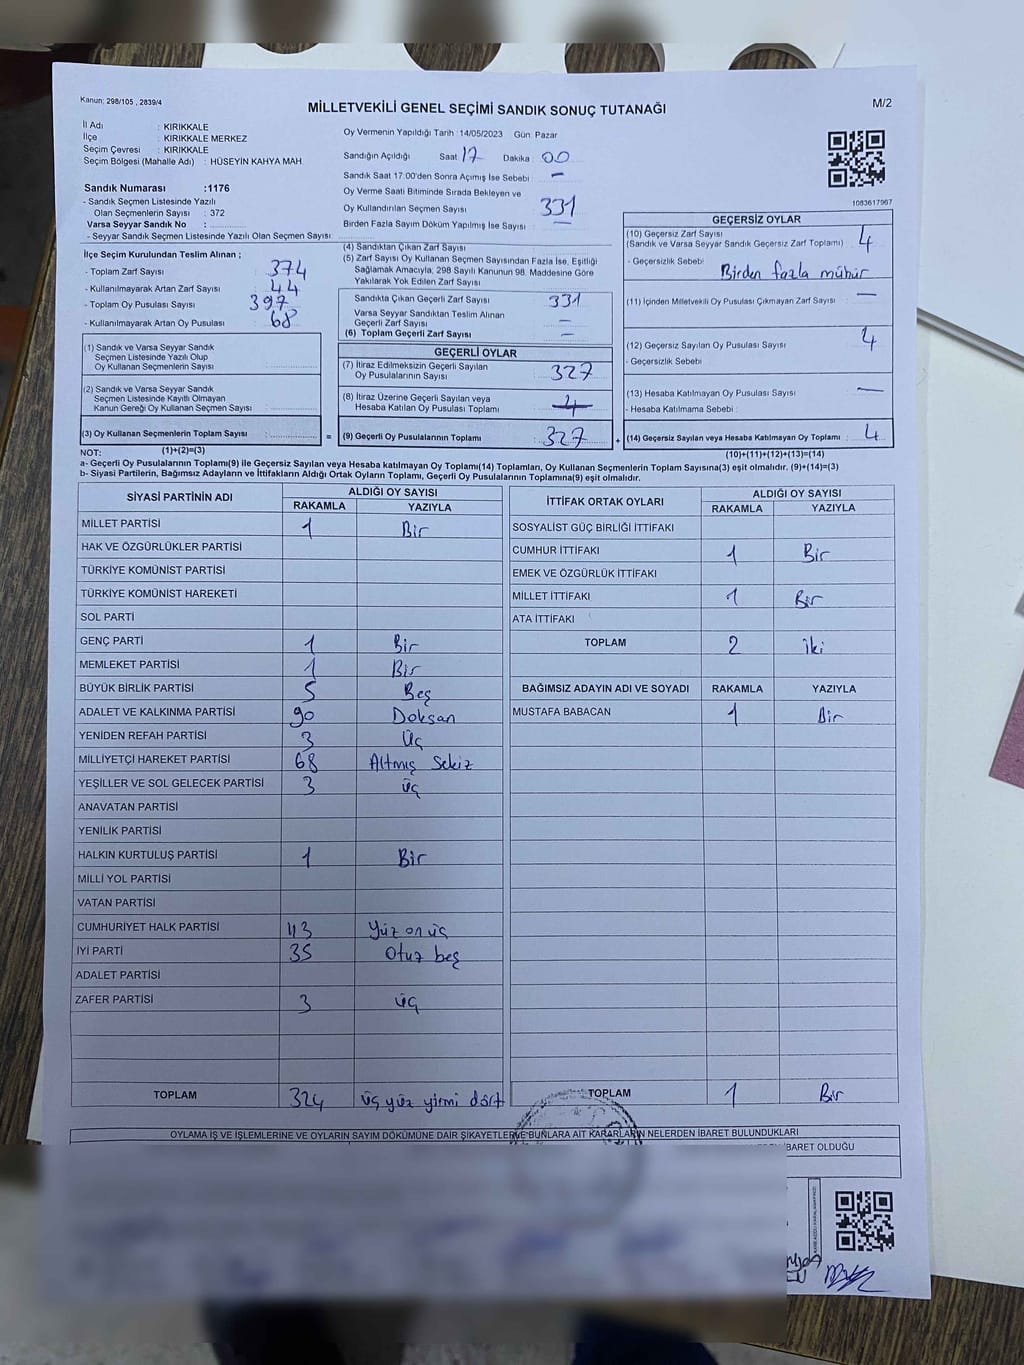 Kanun; 298/105 , 2839/4
MİLLETVEKİLİ GENEL SEÇİMİ SANDIK SONUÇ TUTANAĞI
M/2
İl Adı : KIRIKKALE
İlçe : KIRIKKALE MERKEZ
Seçim Çevresi : KIRIKKALE
Seçim Bölgesi (Mahalle Adı) : HÜSEYİN KAHYA MAH.
Sandık Numarası :1176
- Sandık Seçmen Listesinde Yazılı
Olan Seçmenlerin Sayısı : 372
Varsa Seyyar Sandık No :
- Seyyar Sandık Seçmen Listesinde Yazılı Olan Seçmen Sayısı:
Oy Vermenin Yapıldığı Tarih :14/05/2023 Gün: Pazar
Sandığın Açıldığı Saat 17 Dakika : 00
Sandık Saat 17:00'den Sonra Açımış İse Sebebi : –
Oy Verme Saati Bitiminde Sırada Bekleyen ve
Oy Kullandırılan Seçmen Sayısı : 331
Birden Fazla Sayım Döküm Yapılmış İse Sayısı : –
1083617967
İlçe Seçim Kurulundan Teslim Alınan ;
- Toplam Zarf Sayısı : 374
- Kullanılmayarak Artan Zarf Sayısı : 44
- Toplam Oy Pusulası Sayısı : 397
- Kullanılmayarak Artan Oy Pusulası : 68
(1) Sandık ve Varsa Seyyar Sandık
Seçmen Listesinde Yazılı Olup
Oy Kullanan Seçmenlerin Sayısı :
(2) Sandık ve Varsa Seyyar Sandık
Seçmen Listesinde Kayıtlı Olmayan
Kanun Gereği Oy Kullanan Seçmen Sayısı :
(3) Oy Kullanan Seçmenlerin Toplam Sayısı :
(4) Sandıktan Çıkan Zarf Sayısı
(5) Zarf Sayısı Oy Kullanan Seçmen Sayısından Fazla İse, Eşitliği
Sağlamak Amacıyla, 298 Sayılı Kanunun 98. Maddesine Göre
Yakılarak Yok Edilen Zarf Sayısı
Sandıkta Çıkan Geçerli Zarf Sayısı : 331
Varsa Seyyar Sandıktan Teslim Alınan
Geçerli Zarf Sayısı : –
(6) Toplam Geçerli Zarf Sayısı : –
GEÇERLİ OYLAR
(7) İtiraz Edilmeksizin Geçerli Sayılan
Oy Pusulalarının Sayısı : 327
(8) İtiraz Üzerine Geçerli Sayılan veya
Hesaba Katılan Oy Pusulası Toplamı :
= (9) Geçerli Oy Pusulalarının Toplamı : 327 +
GEÇERSİZ OYLAR
(10) Geçersiz Zarf Sayısı
(Sandık ve Varsa Seyyar Sandık Geçersiz Zarf Toplamı) : 4
- Geçersizlik Sebebi: Birden fazla mühür
(11) İçinden Milletvekili Oy Pusulası Çıkmayan Zarf Sayısı : –
(12) Geçersiz Sayılan Oy Pusulası Sayısı : 4
- Geçersizlik Sebebi
(13) Hesaba Katılmayan Oy Pusulası Sayısı : –
- Hesaba Katılmama Sebebi :
(14) Geçersiz Sayılan veya Hesaba Katılmayan Oy Toplamı : 4
NOT: (1)+(2)=(3) (10)+(11)+(12)+(13)=(14)
a- Geçerli Oy Pusulalarının Toplamı(9) ile Geçersiz Sayılan veya Hesaba katılmayan Oy Toplamı(14) Toplamları, Oy Kullanan Seçmenlerin Toplam Sayısına(3) eşit olmalıdır. (9)+(14)=(3)
b- Siyasi Partilerin, Bağımsız Adayların ve İttifakların Aldığı Ortak Oyların Toplamı, Geçerli Oy Pusulalarının Toplamına(9) eşit olmalıdır.
SİYASİ PARTİNİN ADI ALDIĞI OY SAYISI
RAKAMLA YAZIYLA
MİLLET PARTİSİ 1 Bir
HAK VE ÖZGÜRLÜKLER PARTİSİ
TÜRKİYE KOMÜNİST PARTİSİ
TÜRKİYE KOMÜNİST HAREKETİ
SOL PARTİ
GENÇ PARTİ 1 Bir
MEMLEKET PARTİSİ 1 Bir
BÜYÜK BİRLİK PARTİSİ 5 Beş
ADALET VE KALKINMA PARTİSİ 90 Doksan
YENİDEN REFAH PARTİSİ 3 Üç
MİLLİYETÇİ HAREKET PARTİSİ 68 Altmış Sekiz
YEŞİLLER VE SOL GELECEK PARTİSİ 3 üç
ANAVATAN PARTİSİ
YENİLİK PARTİSİ
HALKIN KURTULUŞ PARTİSİ 1 Bir
MİLLİ YOL PARTİSİ
VATAN PARTİSİ
CUMHURİYET HALK PARTİSİ 113 Yüz on üç
İYİ PARTİ 35 Otuz beş
ADALET PARTİSİ
ZAFER PARTİSİ 3 üç
TOPLAM 324 üç yüz yirmi dört
İTTİFAK ORTAK OYLARI ALDIĞI OY SAYISI
RAKAMLA YAZIYLA
SOSYALİST GÜÇ BİRLİĞİ İTTİFAKI
CUMHUR İTTİFAKI 1 Bir
EMEK VE ÖZGÜRLÜK İTTİFAKI
MİLLET İTTİFAKI 1 Bir
ATA İTTİFAKI
TOPLAM 2 iki
BAĞIMSIZ ADAYIN ADI VE SOYADI RAKAMLA YAZIYLA
MUSTAFA BABACAN 1 Bir
TOPLAM 1 Bir
OYLAMA İŞ VE İŞLEMLERİNE VE OYLARIN SAYIM DÖKÜMÜNE DAİR ŞİKAYETLER VE BUNLARA AİT KARARLARIN NELERDEN İBARET BULUNDUKLARI
İBARET OLDUĞU